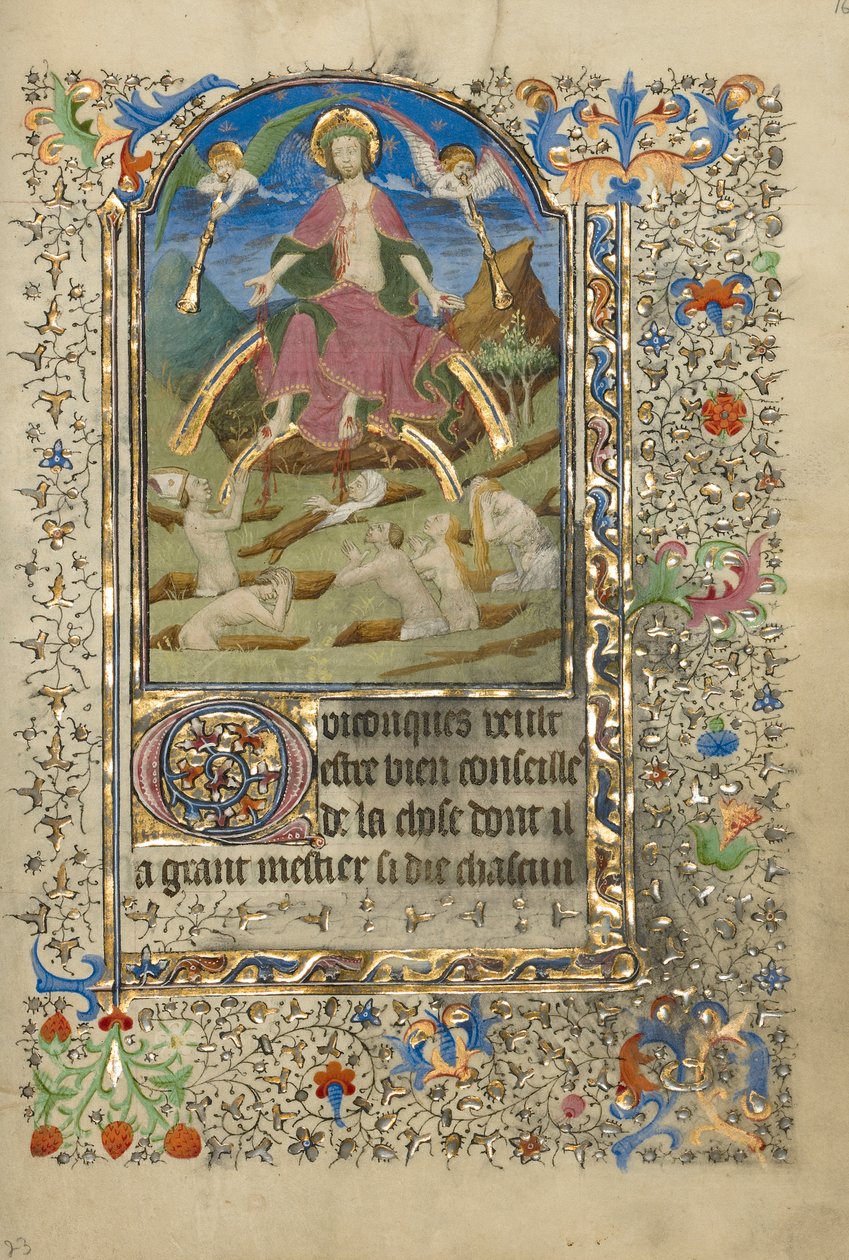 16
Quiconques veult
estre bien conseille
de la chose dont il
a grant mestier si die chascun
23